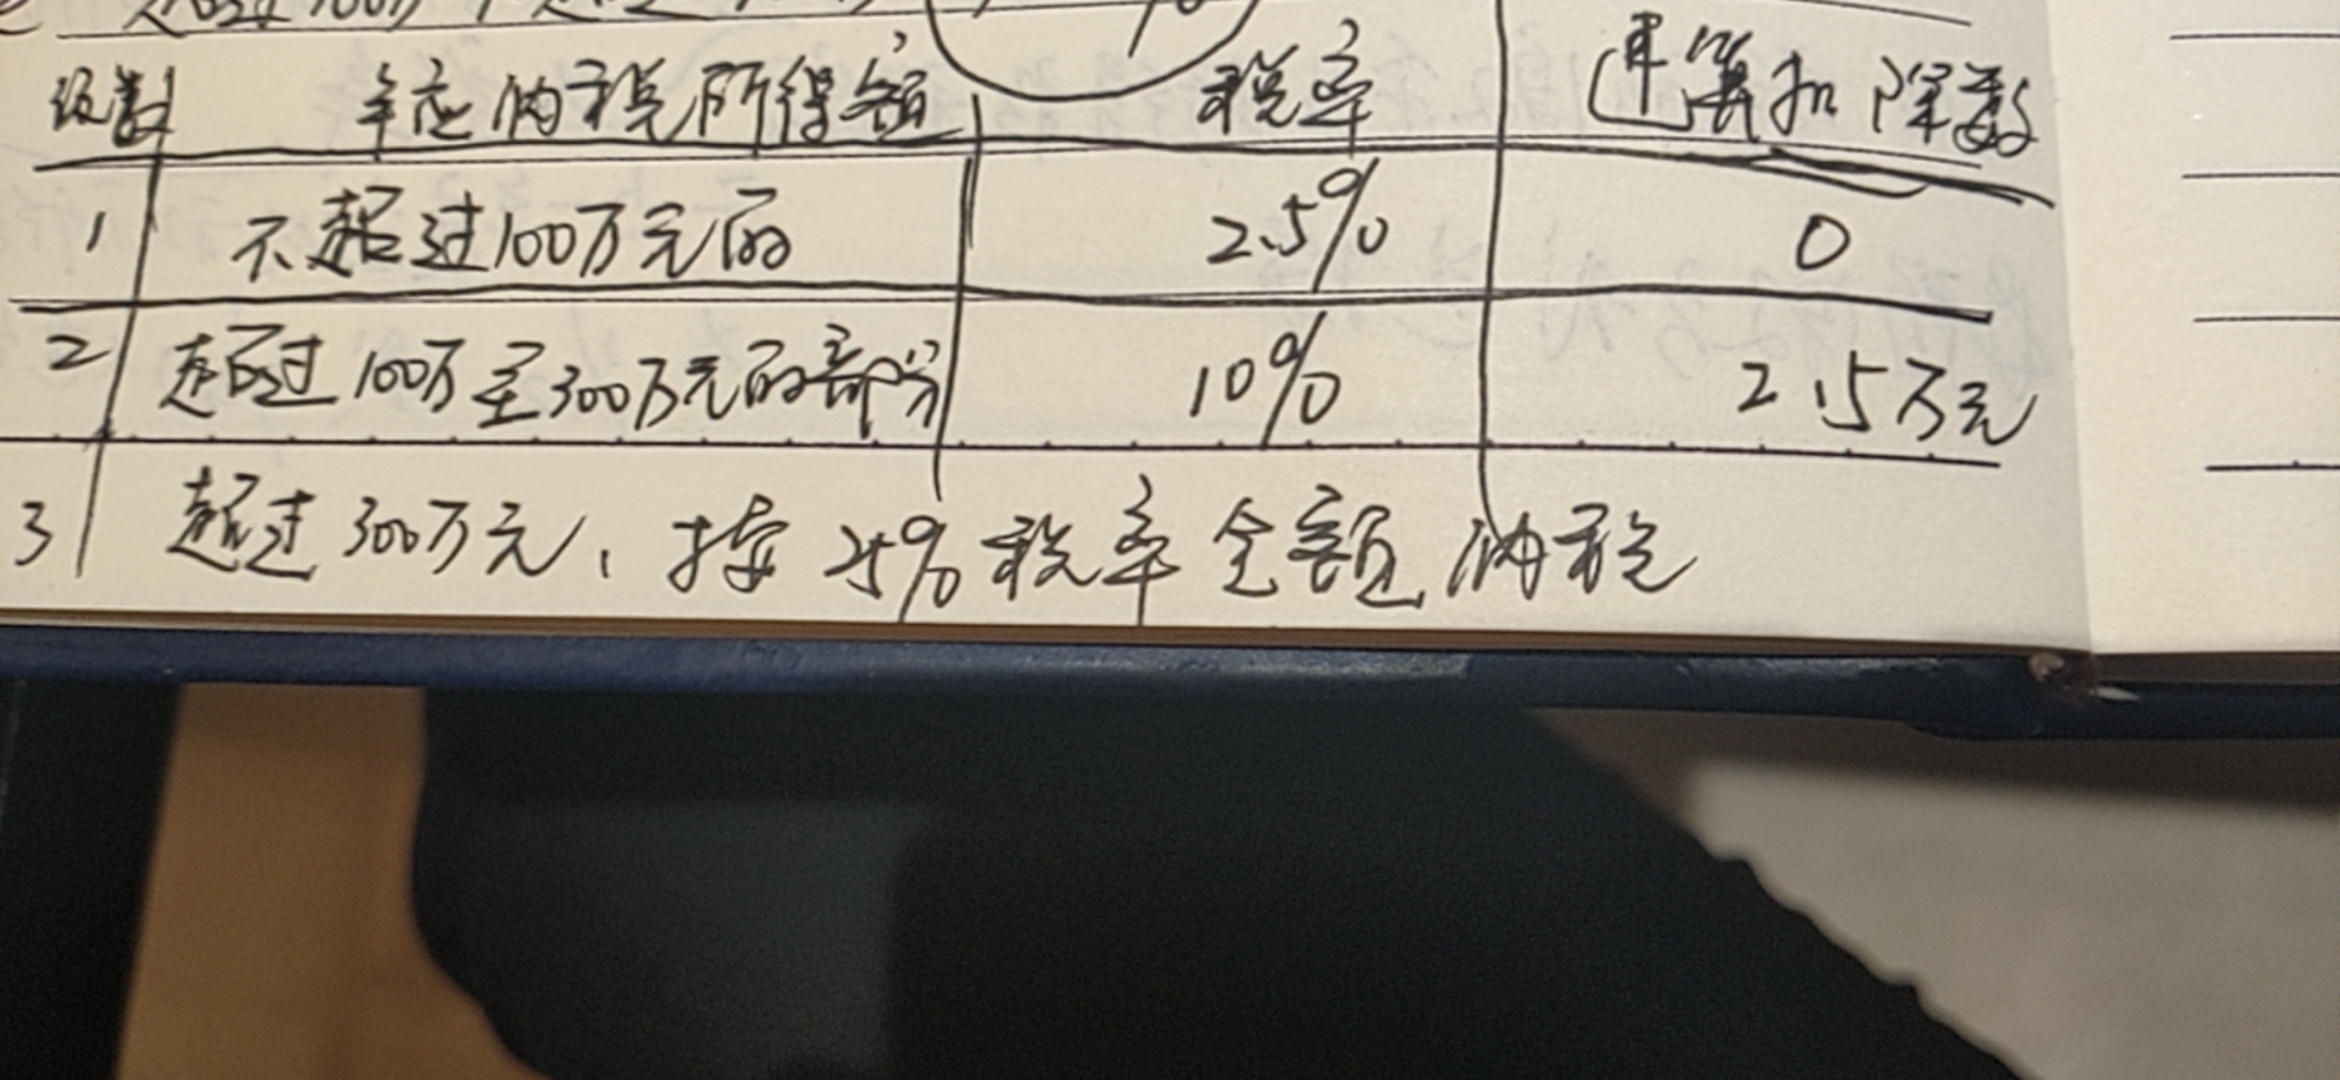 级数 年应纳税所得额 税率 速算扣除数
1 不超过100万元的 2.5% 0
2 超过100万至300万元的部分 10% 2.5万元
3 超过300万元、按25%税率全额纳税